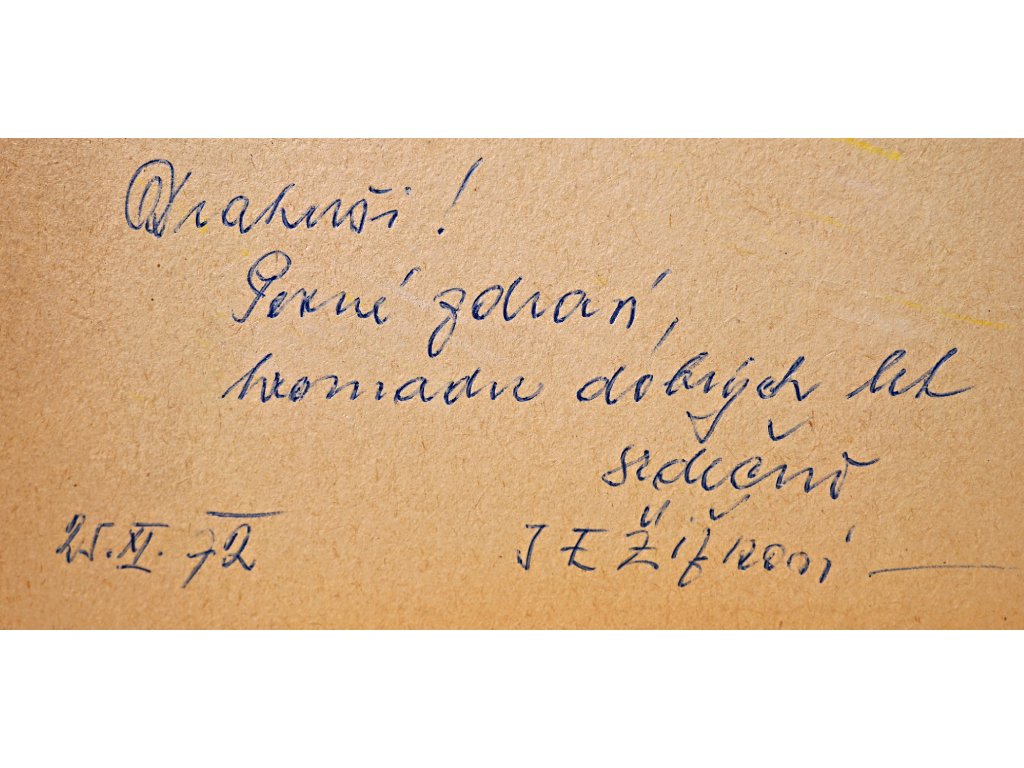 Drahouši!
Pevné zdraví,
hromadu dobrých let
srdečně
25. XI. 72